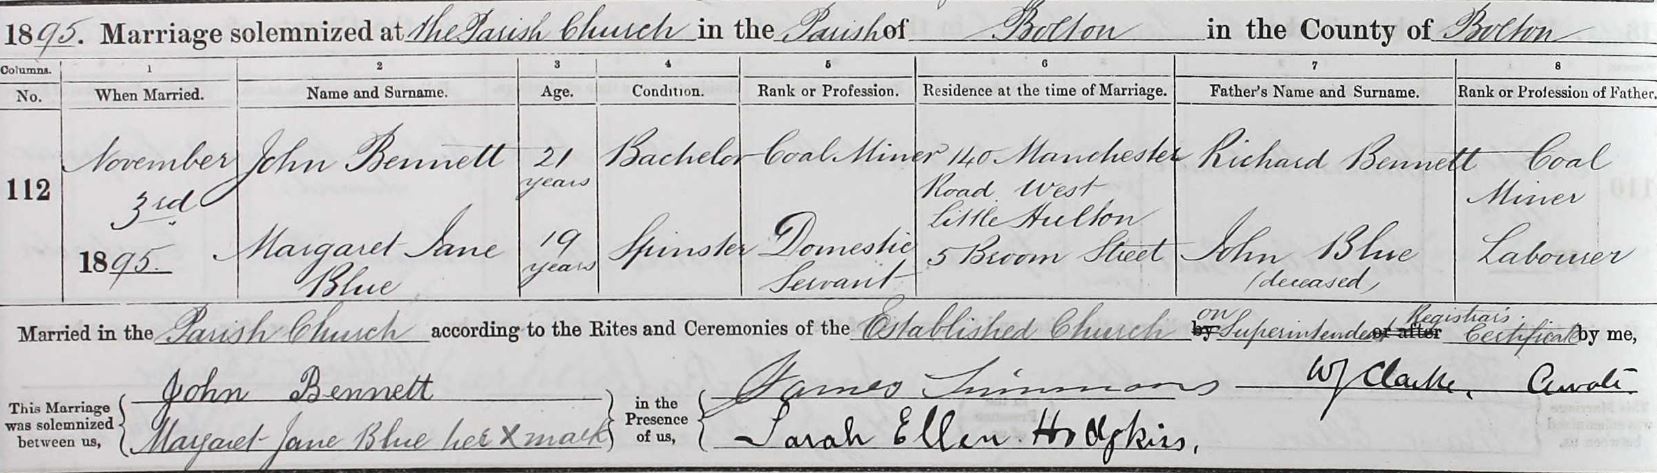 1895. Marriage solemnized at the Parish Church in the Parish of Bolton in the County of Bolton
Columns. 1 2 3 4 5 6 7 8
No. When Married. Name and Surname. Age. Condition. Rank or Profession. Residence at the time of Marriage. Father's Name and Surname. Rank or Profession of Father.
112 November 3rd 1895. John Bennett 21 years Bachelor Coal Miner 140 Manchester Road West Little Hulton Richard Bennett Coal Miner
Margaret Jane Blue 19 years Spinster Domestic Servant 5 Broom Street John Blue (deceased) Labourer
Married in the Parish Church according to the Rites and Ceremonies of the Established Church by on Superintendent Registrars or after Certificate by me,
This Marriage was solemnized between us, John Bennett
Margaret Jane Blue her X mark
in the Presence of us, James Simmons
Sarah Ellen Hodgkiss,
W J Clarke, Curate